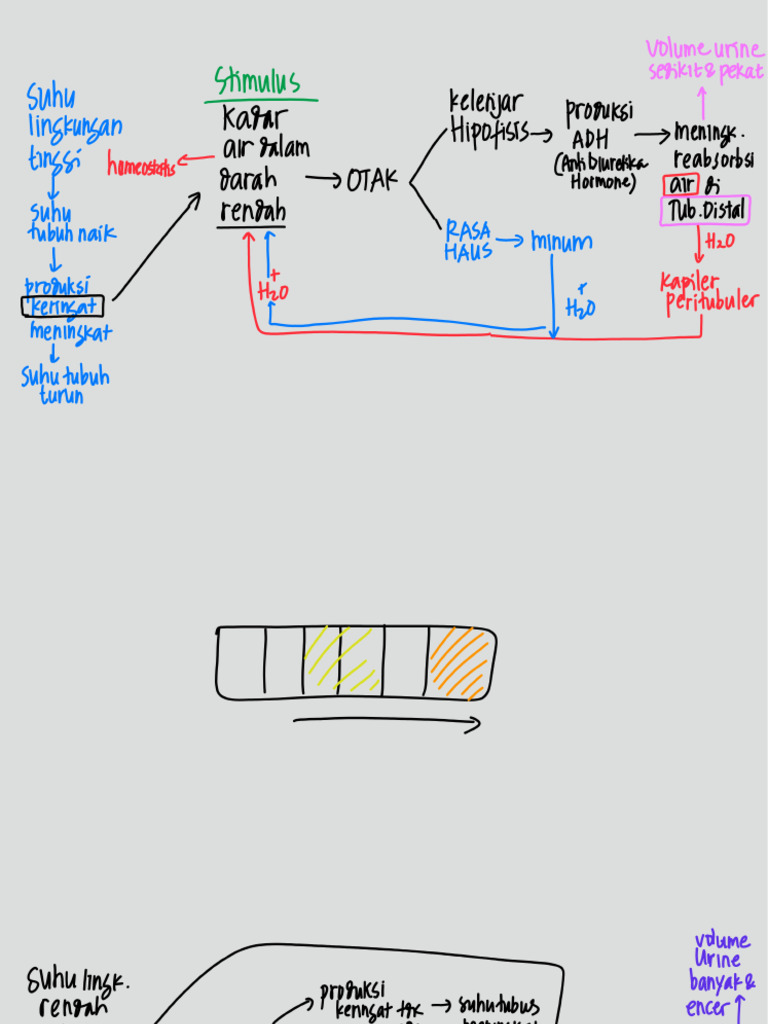 Suhu
lingkungan
tinggi
suhu
tubuh naik
produksi
keringat
meningkat
Suhu tubuh
turun
homeostasis
Stimulus
Kadar
air dalam
darah
rendah
+
H2O
OTAK
kelenjar
Hipofisis
RASA
HAUS
minum
+
H2O
produksi
ADH
(Antidiuretika
Hormone)
volume urine
sedikit & pekat
meningk.
reabsorbsi
air di
Tub. Distal
H2O
kapiler
peritubuler
Suhu lingk.
rendah
produksi
keringat tdk
suhu tubuh
volume
Urine
banyak &
encer